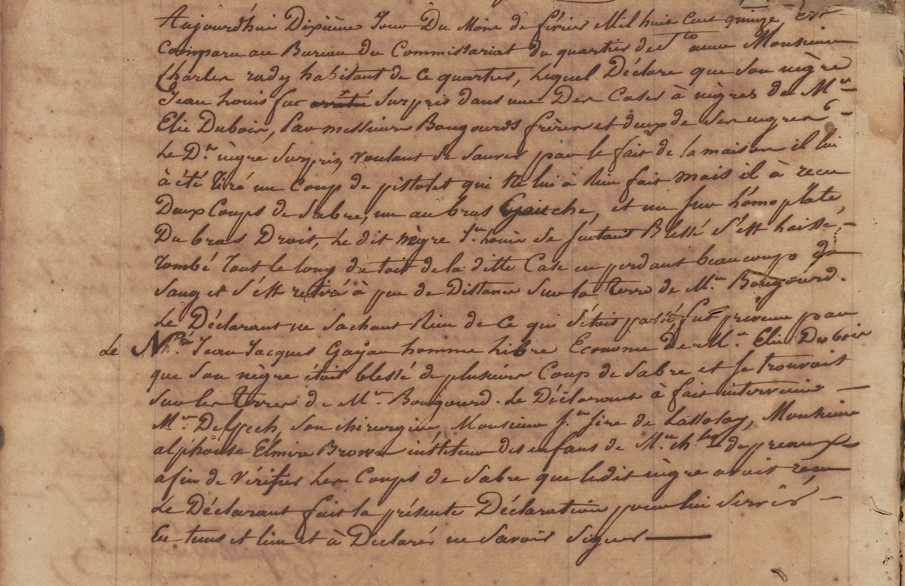 Aujourd'hui Dixième Jour Du Mois de février Mil huit cent quinze, Est
Comparu au Bureau du Commissariat du quartier de Ste anne Monsieur
Charles rady habitant de ce quartier, Lequel Déclare que Son nègre
Jean Louis fut arrêté Surpris dans une Des Cases à nègres de Mr
Elie Dubois, Par messieurs Bougourds frères et deux de Ses nègres
Le Dt nègre Surpris, voulant se Sauver par le fait de la maison il lui
à été tiré un Coup de pistolet qui ne lui à Rien fait mais il à recu
Deux Coups de Sabre, un au bras Gauche, et un Sur l'homoplate,
Du bras Droit, Le dit nègre Jn Louis Se Sentant Blessé S'est Laissé,
Tombé Tout le long du toit de la ditte Case en perdant beaucoup de
Sang et S'est retiré à peu de Distance Sur la terre de Mr Bougourd.
Le Déclarant ne Sachant Rien de Ce qui S'étoit passé fut prévenu par
Le Né Jean Jacques Gayan homme Libre Econome de Mr Elie Dubois
que Son nègre étoit blessé de plusieurs Coup de Sabre et Se trouvoit
Sur les terres de Mr Bougourd. Le Déclarant à fait intervenir
Mr Delpech, Son chirurgien, Monsieur Jn Sire de Lassalay, Monsieur
alphonse Elmire Brown instituteur des enfans de Mr de preau
afin de Vérifier Les Coups de Sabre que Ledit nègre avoit recu
Le Déclarant fait la présente Déclaration pour lui Servir
En tems et lieu et à Déclaré ne Savoir Signer